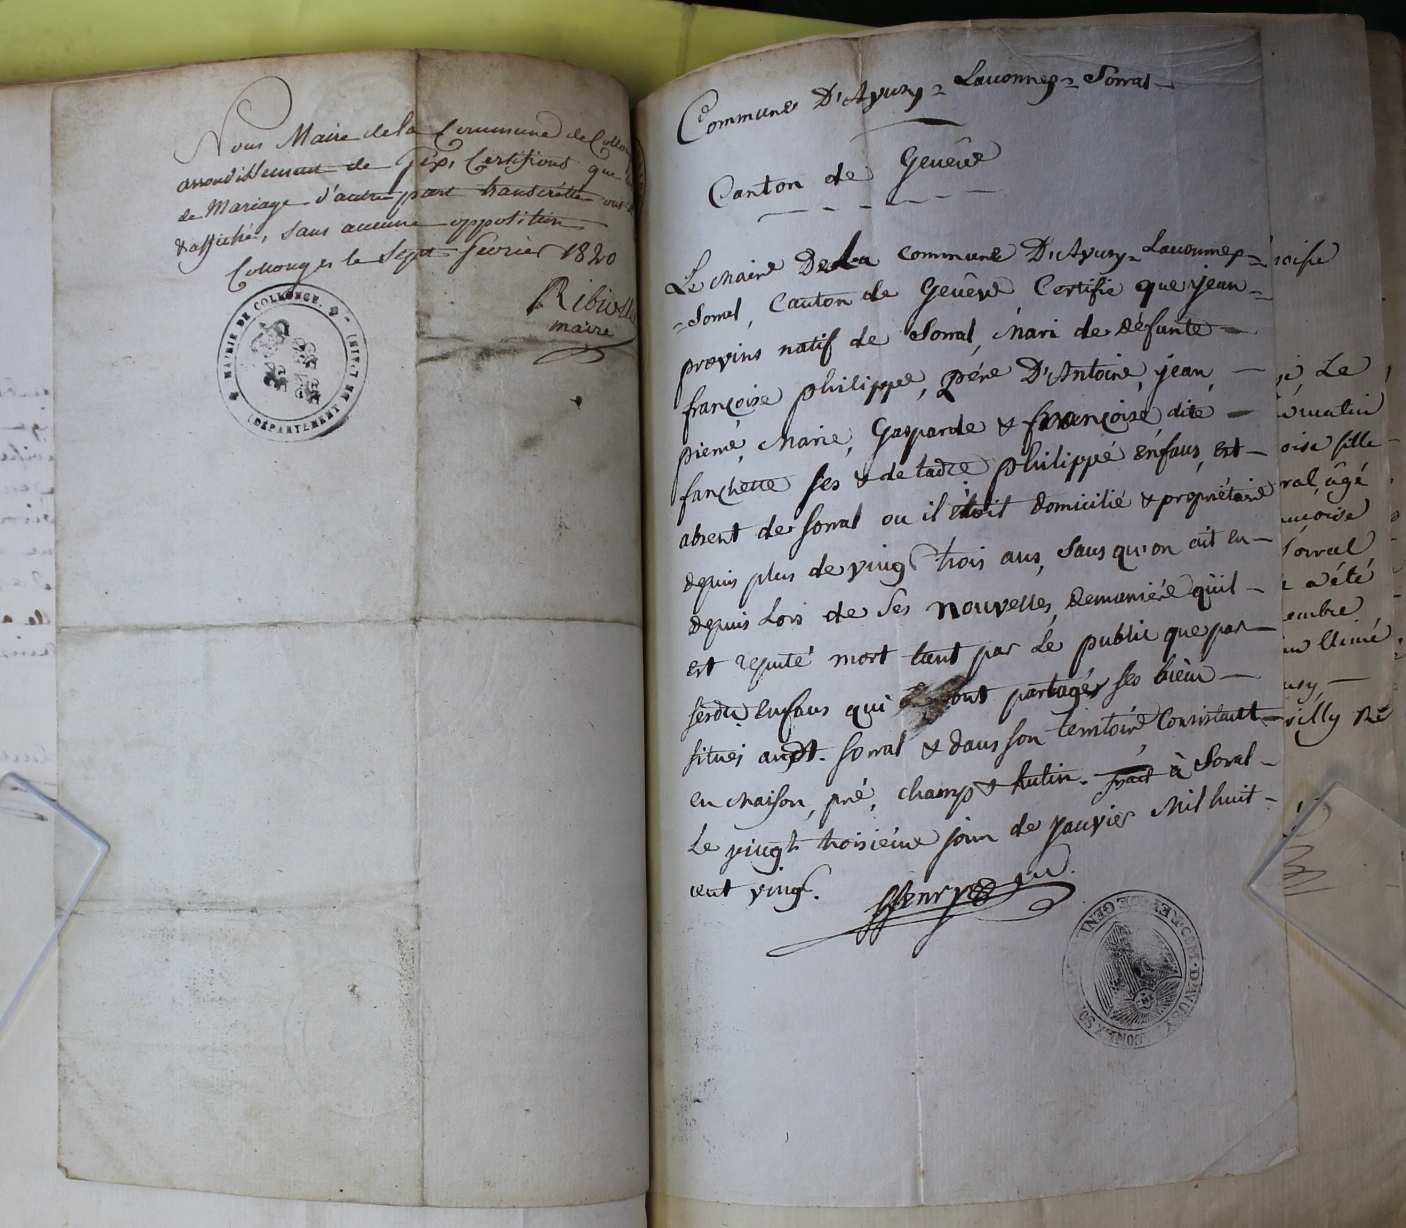 Nous Maire de la Commune de
arrondissement de Gex, Certifions que
de Mariage d'autre part transcritte
& affiché, sans aucune opposition
Collonges le Sept fevrier 1820
maire
MAIRIE DE COLLONGE
(DÉPARTEMENT DE L'AIN)
Commune D'Avusy = Laconnex = Soral
Canton de Genève
Le Maire De La commune D'Avusy = Laconnex =
= Soral, Canton de Genève Certifie que jean =
provins natif de Soral, Mari de défunte
françoise philippe, père D'Antoine, jean,
pierre, Marie, Gasparde & françoise, dite
fanchette ses & de ladte philippe énfans, est
absent de Soral ou il étoit domicilié & propriétaire
depuis plus de vingt trois ans, Sans qu'on eût eu
depuis Lors de Ses Nouvelles, demanière qu'il
est réputé mort tant par Le public que par
sesdts enfans qui ont partagés ses bièns
situés audt. Soral & dans son territoire Consistant
en Maison, pré, champs & hutin. fait à Soral
Le vingt troisième jour de janvier Mil huit
cent vingt.
Henry
oise
Le
matin
oise fille
ral, âgé
Soral
a été
embre